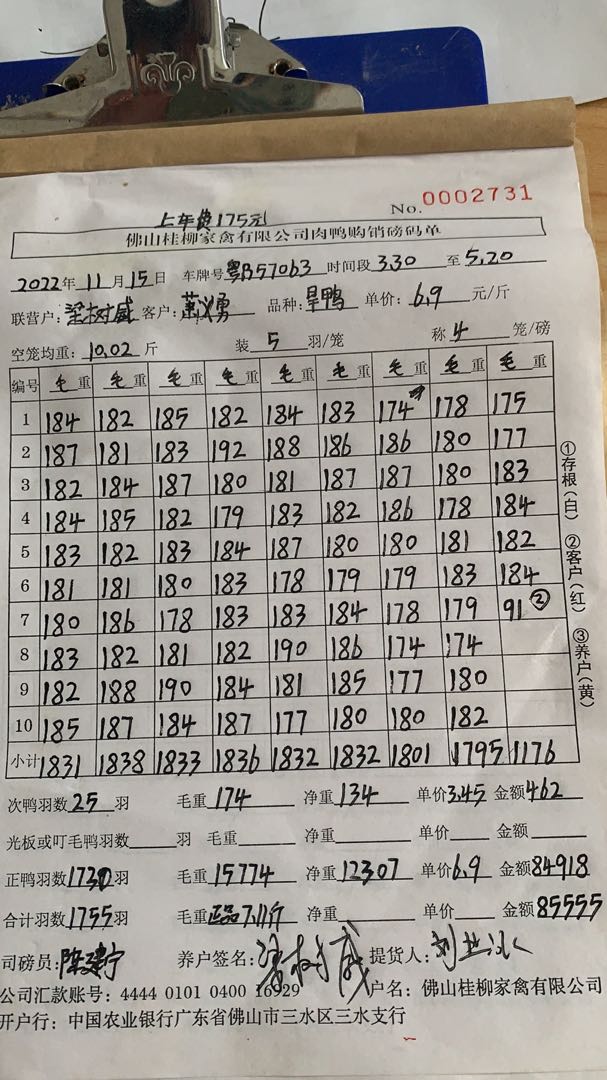 No. 0002731
上车费175元
佛山桂柳家禽有限公司肉鸭购销磅码单
2022年11月15日 车牌号粤B57063 时间段3.30至5.20
联营户:梁树威 客户:萧义勇 品种:旱鸭 单价:6.9元/斤
空笼均重:10.02斤 装5羽/笼 称4笼/磅
编号 毛重 毛重 毛重 毛重 毛重 毛重 毛重 毛重 毛重
1 184 182 185 182 184 183 174 178 175
2 187 181 183 192 188 186 186 180 177
3 182 184 187 180 181 187 187 180 183
4 184 185 182 179 183 182 186 178 184
5 183 182 183 184 187 180 180 181 182
6 181 181 180 183 178 179 179 183 184
7 180 186 178 183 183 184 178 179 91②
8 183 182 181 182 190 186 174 174
9 182 188 190 184 181 185 177 180
10 185 187 184 187 177 180 180 182
小计 1831 1838 1833 1836 1832 1832 1801 1795 1176
①存根(白) ②客户(红) ③养户(黄)
次鸭羽数25羽 毛重174 净重134 单价3.45 金额462
光板或叮毛鸭羽数羽 毛重 净重 单价 金额
正鸭羽数1730羽 毛重15774 净重12307 单价6.9 金额84918
合计羽数1755羽 毛重正品7.11斤 净重 单价 金额85555
司磅员:陈建宁 养户签名:梁树威 提货人:
公司汇款账号:4444 0101 0400 16929 户名:佛山桂柳家禽有限公司
开户行:中国农业银行广东省佛山市三水区三水支行